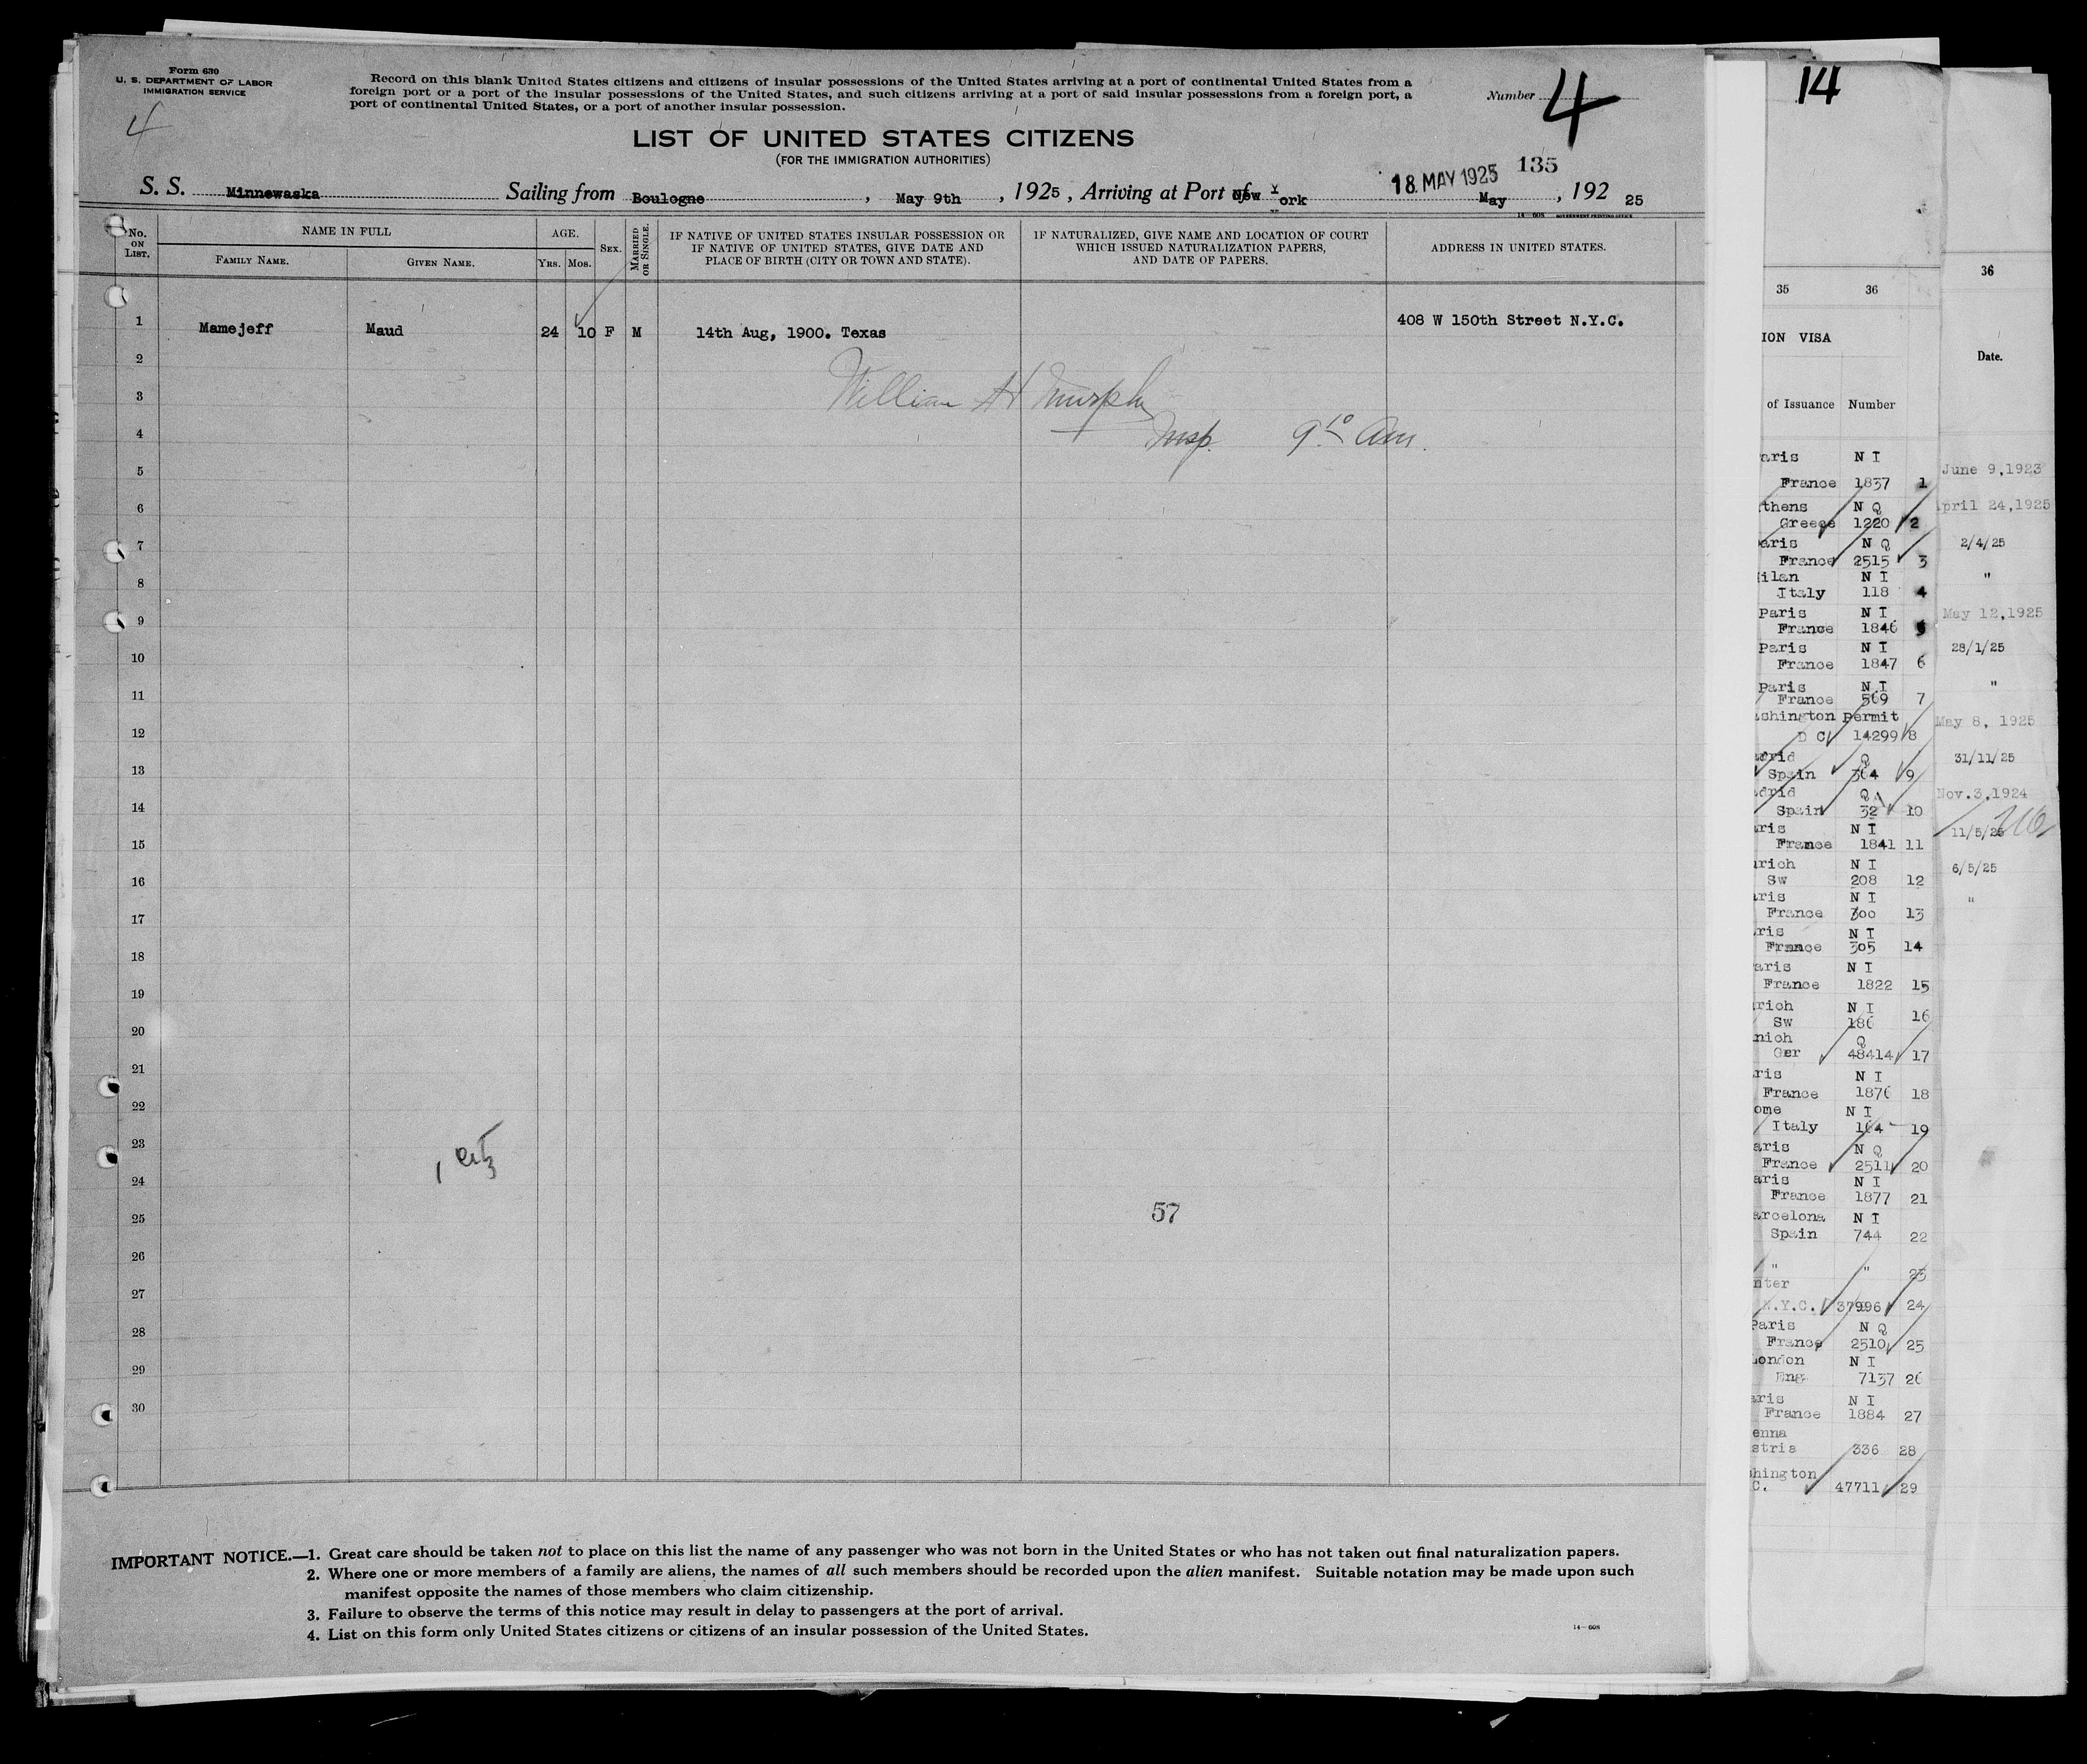 Form 630
U. S. DEPARTMENT OF LABOR
IMMIGRATION SERVICE
4
Record on this blank United States citizens and citizens of insular possessions of the United States arriving at a port of continental United States from a
foreign port or a port of the insular possessions of the United States, and such citizens arriving at a port of said insular possessions from a foreign port, a
port of continental United States, or a port of another insular possession.
Number 4
LIST OF UNITED STATES CITIZENS
(FOR THE IMMIGRATION AUTHORITIES)
18 MAY 1925 135
S. S. Minnewaska Sailing from Boulogne, May 9th, 1925, Arriving at Port of New York May, 192 25
14—608 GOVERNMENT PRINTING OFFICE
No. ON LIST.
NAME IN FULL
FAMILY NAME.
GIVEN NAME.
AGE.
YRS. MOS.
SEX.
MARRIED OR SINGLE.
IF NATIVE OF UNITED STATES INSULAR POSSESSION OR
IF NATIVE OF UNITED STATES, GIVE DATE AND
PLACE OF BIRTH (CITY OR TOWN AND STATE).
IF NATURALIZED, GIVE NAME AND LOCATION OF COURT
WHICH ISSUED NATURALIZATION PAPERS,
AND DATE OF PAPERS.
ADDRESS IN UNITED STATES.
1 Mamejeff Maud 24 10 F M 14th Aug, 1900. Texas 408 W 150th Street N.Y.C.
2
3 William H Murphy
4 Insp. 9 10 Am.
5
6
7
8
9
10
11
12
13
14
15
16
17
18
19
20
21
22
23
1 citz
24
25 57
26
27
28
29
30
IMPORTANT NOTICE.—1. Great care should be taken not to place on this list the name of any passenger who was not born in the United States or who has not taken out final naturalization papers.
2. Where one or more members of a family are aliens, the names of all such members should be recorded upon the alien manifest. Suitable notation may be made upon such
manifest opposite the names of those members who claim citizenship.
3. Failure to observe the terms of this notice may result in delay to passengers at the port of arrival.
4. List on this form only United States citizens or citizens of an insular possession of the United States.
14—608
14
35 36
ION VISA
of Issuance Number
aris N I
France 1837 1
thens N Q
Greece 1220 2
aris N Q
France 2515 3
ilan N I
Italy 118 4
Paris N I
France 1846 5
Paris N I
France 1847 6
Paris N I
France 569 7
shington Permit
D C 14299 8
drid Q
Spain 364 9
drid Q
Spain 32 10
ris N I
France 1841 11
rich N I
Sw 208 12
ris N I
France 300 13
ris N I
France 305 14
aris N I
France 1822 15
rich N I
Sw 186 16
nich Q
Ger 48414 17
ris N I
France 1876 18
ome N I
Italy 164 19
aris N Q
France 2511 20
aris N I
France 1877 21
arcelona N I
Spain 744 22
" " 23
nter
N.Y.C. 37996 24
Paris N Q
France 2510 25
London N I
Eng 7137 26
aris N I
France 1884 27
enna
stria 336 28
hington
C. 47711 29
36
Date.
June 9,1923
April 24,1925
2/4/25
"
May 12,1925
28/1/25
"
May 8, 1925
31/11/25
Nov.3,1924
11/5/25
6/5/25
"